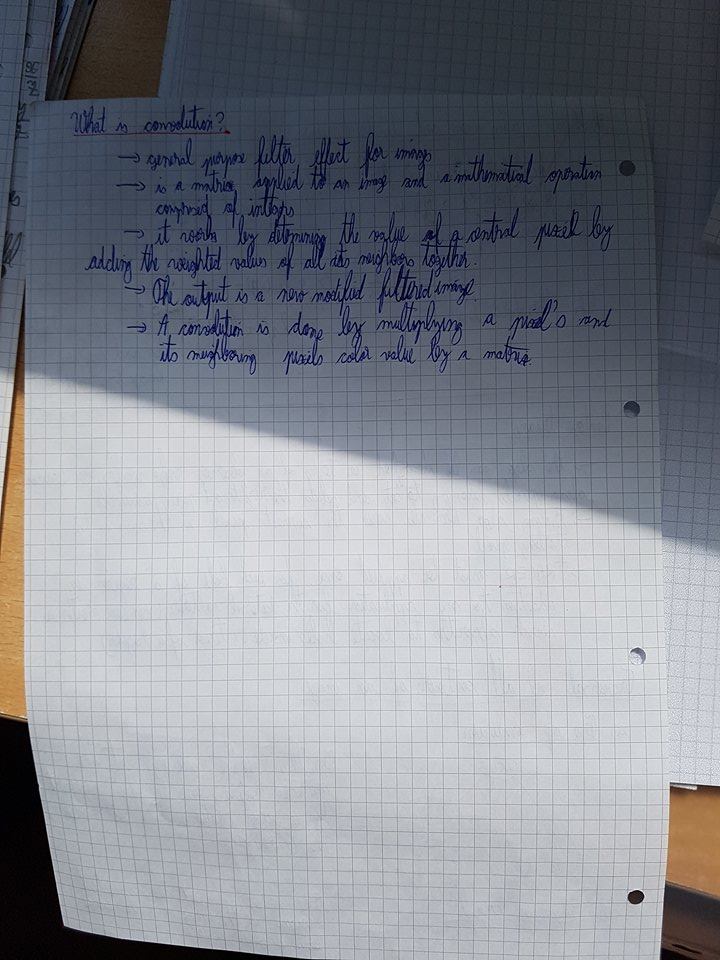 What is convolution?
→ general purpose filter effect for images
→ is a matrix applied to an image and a mathematical operation
comprised of integers
→ it works by determining the value of a central pixel by
adding the weighted values of all its neighbors together.
→ The output is a new modified filtered image
→ A convolution is done by multiplying a pixel's and
its neighboring pixels color value by a matrix